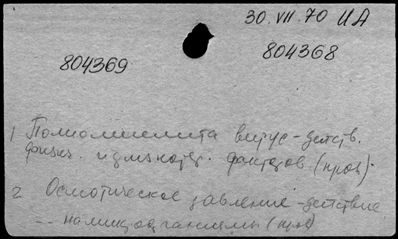 30. VII. 70 ИА
804369
804368
1 Полиомиелита вирус - действ.
физич. и химич. факторов (пров).
2 Осмотическое давление - действие
-- на микроорганизмы (пров)